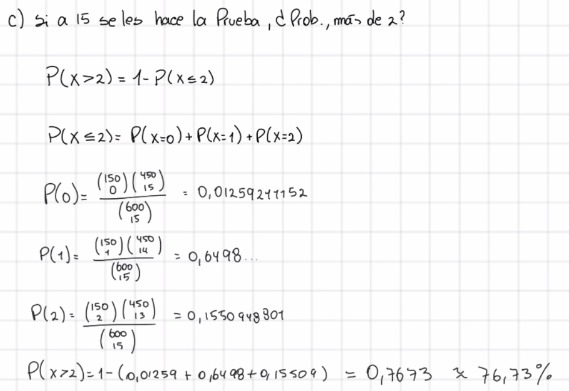 c) Si a 15 se les hace la Prueba, d Prob., más de 2?
P(x>2) = 1 - P(x≤2)
P(x≤2) = P(x=0) + P(x=1) + P(x=2)
P(0) = (150 0)(450 15) / (600 15) = 0,01259241152
P(1) = (150 1)(450 14) / (600 15) = 0,6498...
P(2) = (150 2)(450 13) / (600 15) = 0,1550948301
P(x>2) = 1 - (0,01259 + 0,6498 + 0,15509) = 0,7673 ≈ 76,73%